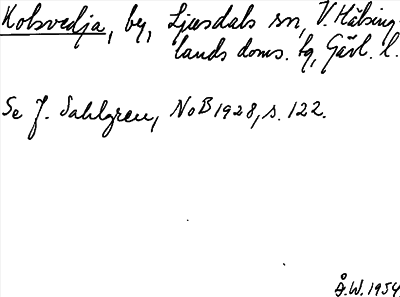 Kolsvedja, by, Ljusdals sn, V. Hälsing-
lands doms. tg, Gävl. l.
Se J. Sahlgren, NoB 1928, s. 122.
Å.W. 1954